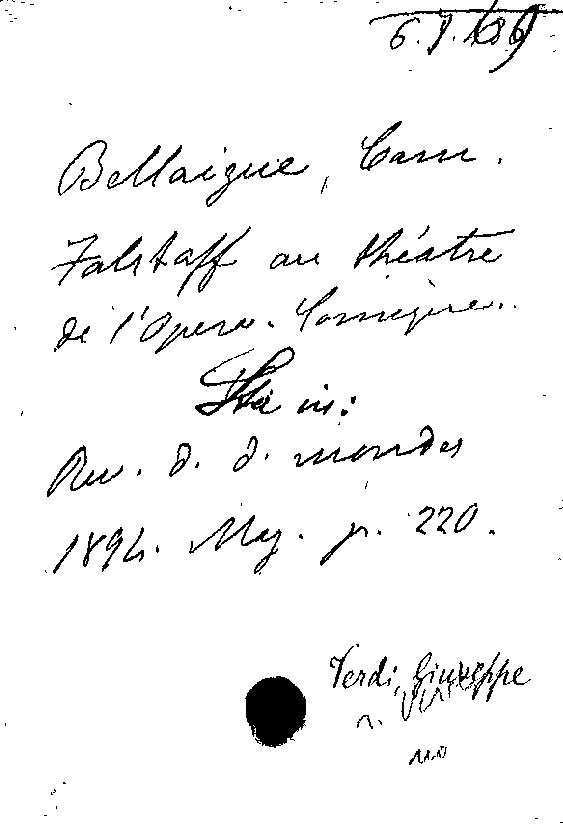 Bellaigue, Cam.
Falstaff au théatre
de l'Opera-Comique.
Sta in:
Rev. d. d. mondes
1894. Mag. p. 220.
Verdi, Giuseppe